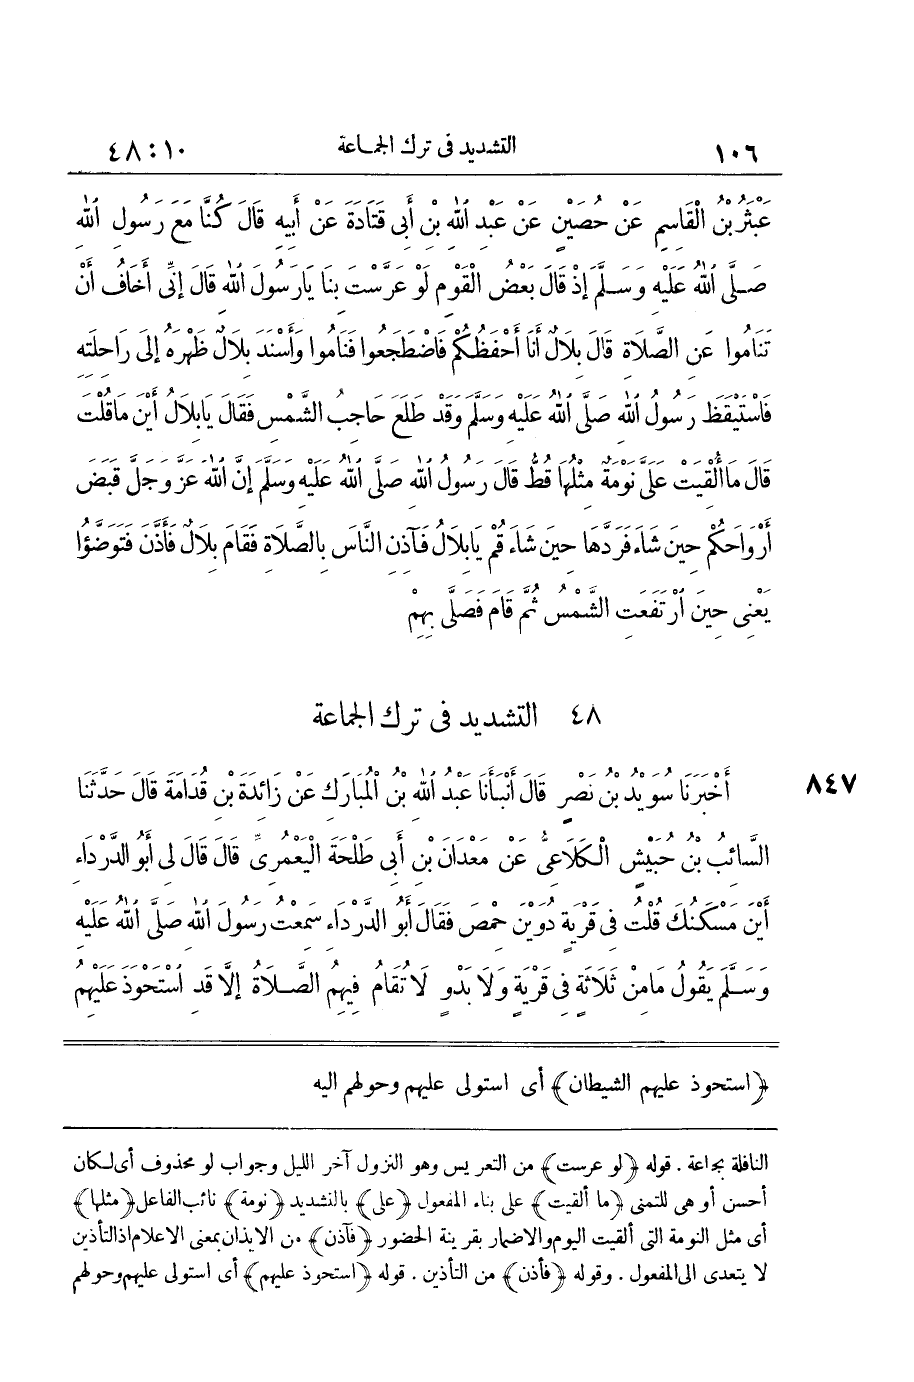 ١٠٦ التشديد فى ترك الجماعة ١٠ : ٤٨
عَبْثَرُ بْنُ الْقَاسِمِ عَنْ حُصَيْنٍ عَنْ عَبْدِ اللّٰهِ بْنِ أَبِى قَتَادَةَ عَنْ أَبِيهِ قَالَ كُنَّا مَعَ رَسُولِ اللّٰهِ
صَلَّى اللّٰهُ عَلَيْهِ وَسَلَّمَ إِذْ قَالَ بَعْضُ الْقَوْمِ لَوْ عَرَّسْتَ بِنَا يَارَسُولَ اللّٰهِ قَالَ إِنِّى أَخَافُ أَنْ
تَنَامُوا عَنِ الصَّلَاةِ قَالَ بِلَالٌ أَنَا أَحْفَظُكُمْ فَاضْطَجَعُوا فَنَامُوا وَأَسْنَدَ بِلَالٌ ظَهْرَهُ إِلَى رَاحِلَتِهِ
فَاسْتَيْقَظَ رَسُولُ اللّٰهِ صَلَّى اللّٰهُ عَلَيْهِ وَسَلَّمَ وَقَدْ طَلَعَ حَاجِبُ الشَّمْسِ فَقَالَ يَابِلَالُ أَيْنَ مَاقُلْتَ
قَالَ مَاأُلْقِيَتْ عَلَىَّ نَوْمَةٌ مِثْلُهَا قَطُّ قَالَ رَسُولُ اللّٰهِ صَلَّى اللّٰهُ عَلَيْهِ وَسَلَّمَ إِنَّ اللّٰهَ عَزَّ وَجَلَّ قَبَضَ
أَرْوَاحَكُمْ حِينَ شَاءَ فَرَدَّهَا حِينَ شَاءَ قُمْ يَابِلَالُ فَآذِنِ النَّاسَ بِالصَّلَاةِ فَقَامَ بِلَالٌ فَأَذَّنَ فَتَوَضَّؤُا
يَعْنِى حِينَ ارْتَفَعَتِ الشَّمْسُ ثُمَّ قَامَ فَصَلَّى بِهِمْ
٤٨ التشديد فى ترك الجماعة
أَخْبَرَنَا سُوَيْدُ بْنُ نَصْرٍ قَالَ أَنْبَأَنَا عَبْدُ اللّٰهِ بْنُ الْمُبَارَكِ عَنْ زَائِدَةَ بْنِ قُدَامَةَ قَالَ حَدَّثَنَا ٨٤٧
السَّائِبُ بْنُ حُبَيْشٍ الْكَلَاعِىُّ عَنْ مَعْدَانَ بْنِ أَبِى طَلْحَةَ الْيَعْمُرِىِّ قَالَ قَالَ لِى أَبُو الدَّرْدَاءِ
أَيْنَ مَسْكَنُكَ قُلْتُ فِى قَرْيَةٍ دُوَيْنَ حِمْصَ فَقَالَ أَبُو الدَّرْدَاءِ سَمِعْتُ رَسُولَ اللّٰهِ صَلَّى اللّٰهُ عَلَيْهِ
وَسَلَّمَ يَقُولُ مَامِنْ ثَلَاثَةٍ فِى قَرْيَةٍ وَلَا بَدْوٍ لَا تُقَامُ فِيهِمُ الصَّلَاةُ إِلَّا قَدِ اسْتَحْوَذَ عَلَيْهِمُ
﴿استحوذ عليهم الشيطان﴾ أى استولى عليهم وحولهم اليه
النافلة بجماعة . قوله ﴿لو عرست﴾ من التعريس وهو النزول آخر الليل وجواب لو محذوف أى لكان
أحسن أو هى للتمنى ﴿ما ألقيت﴾ على بناء المفعول ﴿على﴾ بالتشديد ﴿نومة﴾ نائب الفاعل ﴿مثلها﴾
أى مثل النومة التى ألقيت اليوم والاضمار بقرينة الحضور ﴿فآذن﴾ من الايذان بمعنى الاعلام اذ التأذين
لا يتعدى الى المفعول . وقوله ﴿فأذن﴾ من التأذين . قوله ﴿استحوذ عليهم﴾ أى استولى عليهم وحولهم